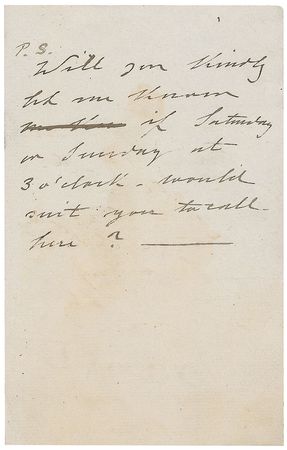 P.S.
Will you kindly
let me know
if Saturday
or Sunday at
3 o'clock - would
suit you to call
here ?